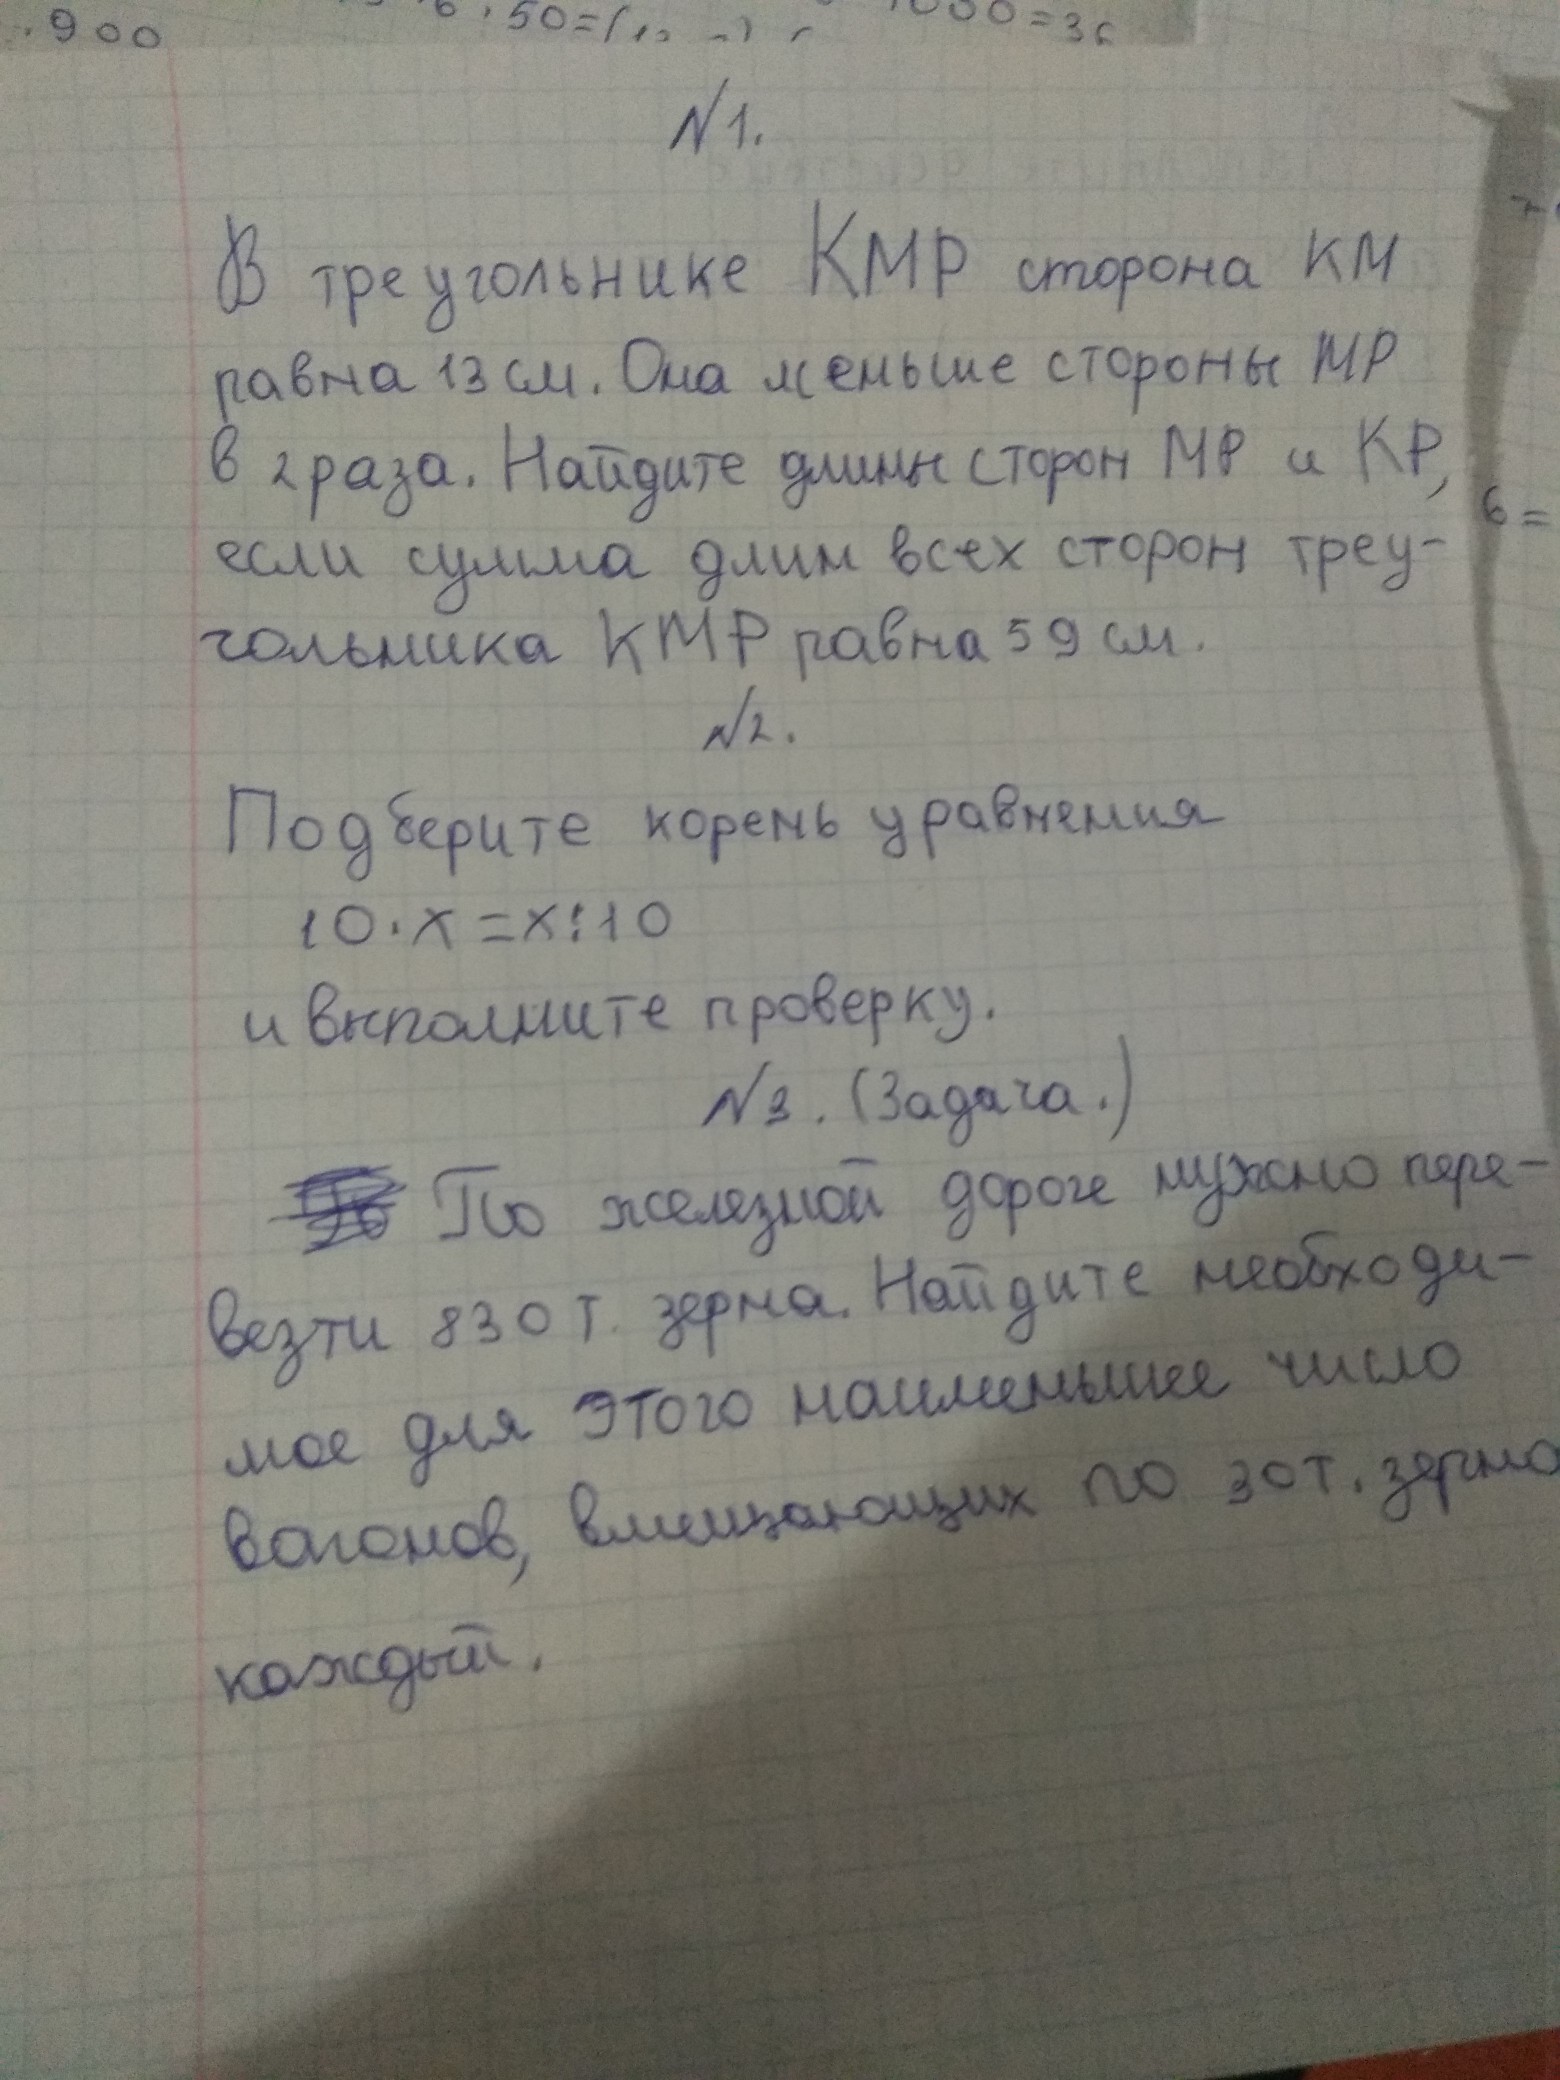 900
50=(
1000=36
N1.
В треугольнике КМР сторона КМ
равна 13 см. Она меньше стороны МР
в 2 раза. Найдите длины сторон МР и КР,
6=
если сумма длин всех сторон треу-
гольника КМР равна 59 см.
N2.
Подберите корень уравнения
10·х=х:10
и выполните проверку.
N3. (Задача.)
По железной дороге нужно пере-
везти 830 т. зерна. Найдите необходи-
мое для этого наименьшее число
вагонов, вмещающих по 30 т. зерна
каждый.